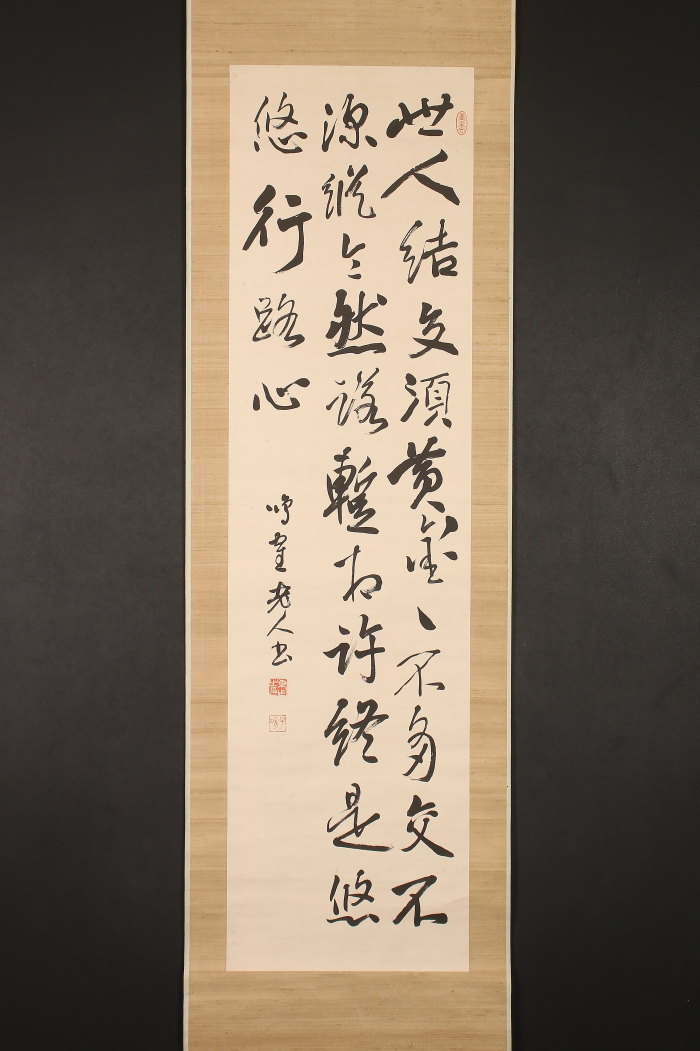 世人結交須黄〻金〻不多交不
深縱令然諾暫相許終是悠
悠行路心
鳴鶴老人書